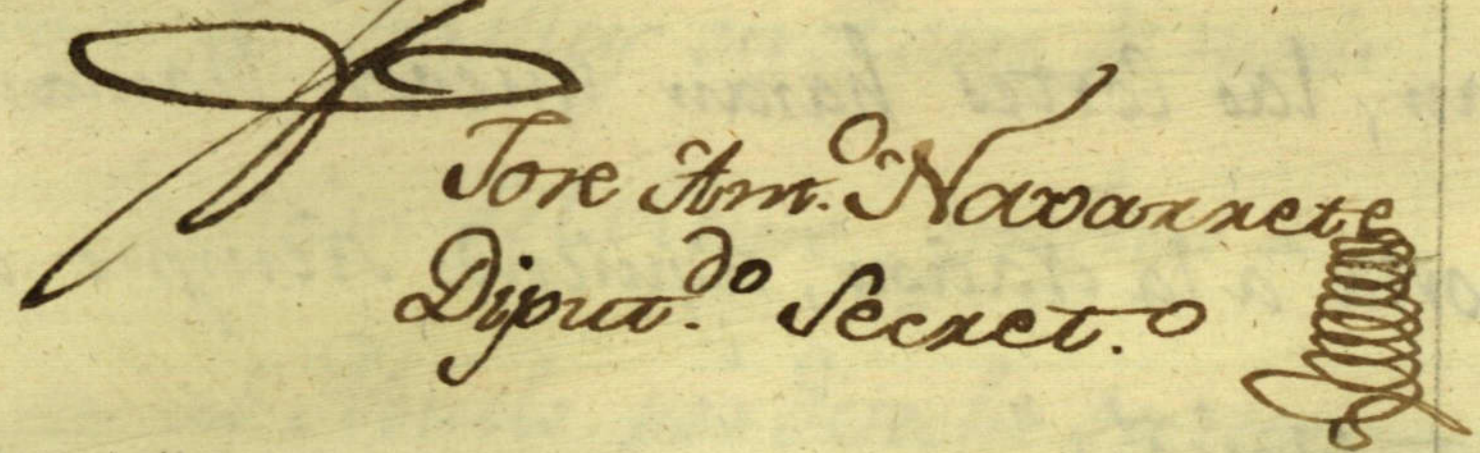 Jose Ant.º Navarrete
Diput.do Secret.º